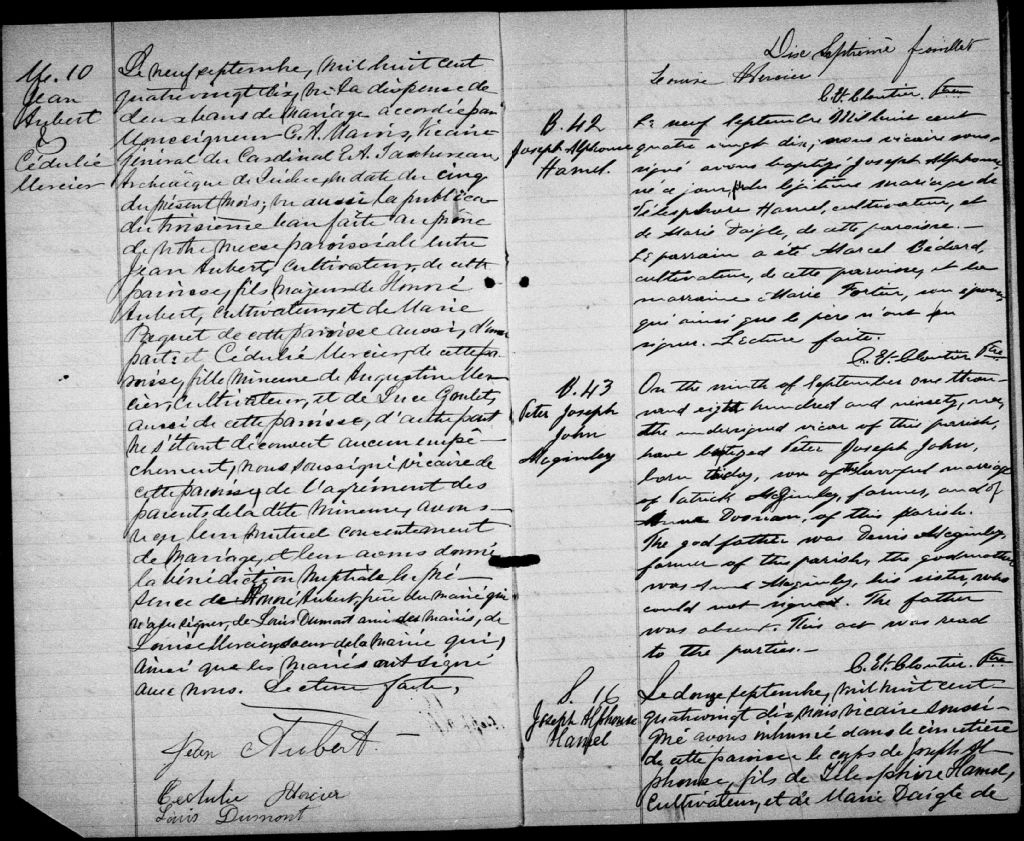 M. 10
Jean
Aubert
&
Cédulie
Mercier
Le neuf septembre, mil huit cent
quatrevingt dix, vu la dispense de
deux bans de mariage accordée par
Monseigneur C. A. Marois, Vicaire
Général du Cardinal E. A. Taschereau
Archevêque de Québec, en date du cinq
du présent mois; vu aussi la publica-
du troisième ban faite au prône
de notre messe paroissiale entre
Jean Aubert, cultivateur, de cette
paroisse, fils majeur de Honoré
Aubert, cultivateur, et de Marie
Paquet de cette paroisse aussi, d'une
part; et Cédulie Mercier, de cette pa-
roisse, fille mineure de Augustin Mer-
cier, cultivateur, et de Luce Goulet,
aussi de cette paroisse, d'autre part
ne s'étant découvert aucun empê-
chement, nous soussigné vicaire de
cette paroisse, de l'agrément des
parents de la dite mineure, avons
reçu leur mutuel consentement
de mariage, et leur avons donné
la bénédiction nuptiale en pré-
sence de Honoré Aubert père du marié qui
n'a pu signer, de Louis Dumont ami des mariés, de
Louise Mercier, soeur de la mariée qui,
ainsi que les mariés ont signé
avec nous. Lecture faite,
Jean Aubert.
Cedulie Mercier
Louis Dumont
Dix Septième feuillet
Louise Mercier
C. Et. Cloutier, Ptre
B. 42
Joseph Alphonse
Hamel.
Le neuf Septembre Mil huit cent
quatre vingt dix, nous vicaire sous-
signé avons baptisé Joseph Alphonse,
né ce jour, du légitime mariage de
Télesphore Hamel, cultivateur, et
de Marie Daigle, de cette paroisse.—
Le parrain a été Marcel Bedard,
cultivateur, de cette paroisse, et la
marraine Marie Fortier, son épouse
qui ainsi que le père n'ont pu
signer. Lecture faite.
C. Et. Cloutier Ptre
B. 43
Peter Joseph
John
Maginley
On the ninth of September one thou-
sand eight hundred and ninety, we,
the undersigned vicar of this parish,
have baptized Peter Joseph John,
born today, son of the lawful marriage
of Patrick McGinley, farmer, and of
Anna Doonan, of this parish.
The godfather was Denis Maginley,
farmer of this parish, the godmother
was Maginley, his sister, who
could not signed. The father
was absent. This act was read
to the parties.—
C. Et. Cloutier. Ptre
S. 16
Joseph Alphonse
Hamel
Le douze septembre, mil huit cent
quatrevingt dix, nous vicaire soussi-
gné avons inhumé dans le cimetière
de cette paroisse le corps de Joseph Al-
phonse, fils de Télesphore Hamel,
cultivateur, et de Marie Daigle de